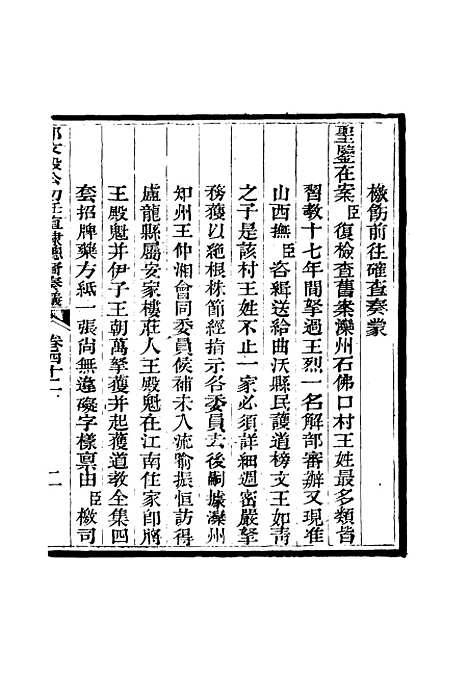 檄飭前往確查奏蒙
聖鑒在案臣復檢查舊案灤州石佛口村王姓最多類皆
習教十七年間拏過王烈一名解部審辦又現准
山西撫臣咨緝送給曲沃縣民護道榜文王如青
之子是該村王姓不止一家必須詳細週密嚴拏
務獲以絕根株節經指示各委員去後嗣據灤州
知州王仲湘會同委員候補未入流喻振恒訪得
盧龍縣屬安家樓莊人王殿魁在江南住家卽將
王殿魁并伊子王朝萬拏獲并起獲道教全集四
套招牌藥方紙一張尚無違礙字樣稟由臣檄司
那文毅公初任直隸總督奏議 卷四十二 二